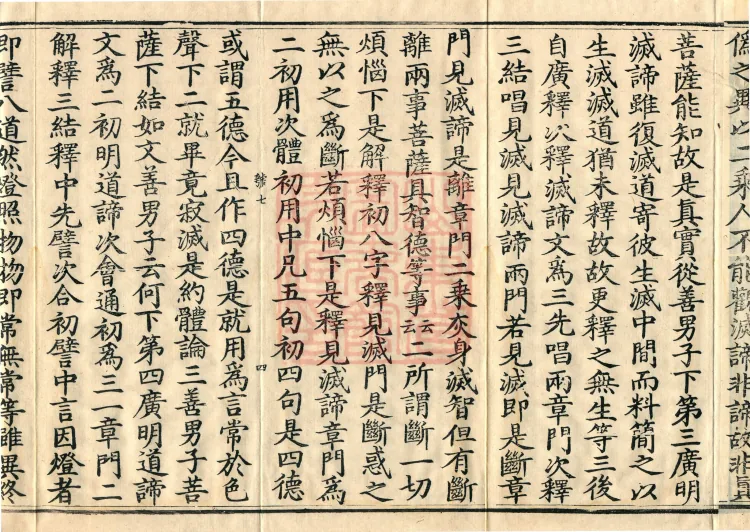 偽之異以二乘人不能觀滅諦非諦故非
菩薩能知故是真實從善男子下第三廣明
滅諦雖復滅道寄彼生滅中間而料簡之以
生滅滅道猶未釋故故更釋之無生等三後
自廣釋次釋滅諦文爲三先唱兩章門次釋
三結唱見滅見滅諦兩門若見滅即是斷章
門見滅諦是離章門二乘灰身滅智但有斷
離兩事菩薩具智德等事云云二所謂斷一切
煩惱下是解釋初八字釋見滅門是斷惑之
無以之爲斷若煩惱下是釋見滅諦章門爲
二初用次體初用中凡五句初四句是四德
七 四
或謂五德今且作四德是就用爲言常於色
聲下二就畢竟寂滅是約體論三善男子菩
薩下結如文善男子云何下第四廣明道諦
文爲二初明道諦次會通初爲三一章門二
解釋三結釋中先譬次合初譬中言因燈者
即譬八道然燈照物物即常無常等雖異終